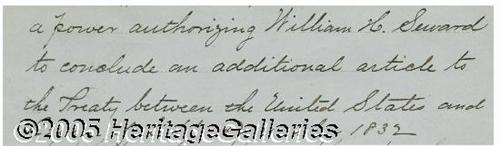 a power authorizing William H. Seward
to conclude an additional article to
the Treaty between the United States and
1832
©2005 HeritageGalleries